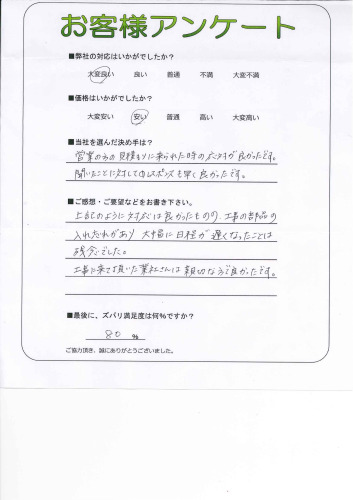 お客様アンケート
■弊社の対応はいかがでしたか？
大変良い 良い 普通 不満 大変不満
■価格はいかがでしたか？
大変安い 安い 普通 高い 大変高い
■当社を選んだ決め手は？
営業の方の見積もりに来られた時の応対が良かったです。
聞いたことに対してのレスポンスも早く良かったです。
■ご感想・ご要望などをお書き下さい。
上記のように対応は良かったものの、工事の部品の
入れ忘れがあり 大幅に日程が遅くなったことは
残念でした。
工事に来て頂いた業社さんは親切な方で良かったです。
■最後に、ズバリ満足度は何％ですか？
80 %
ご協力頂き、誠にありがとうございました。